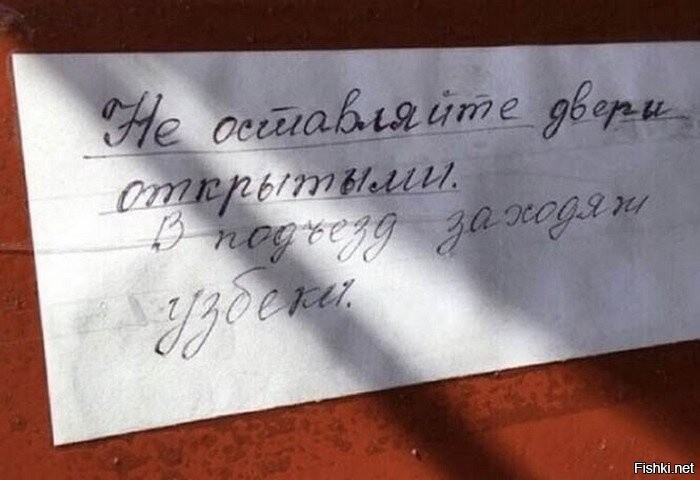 Не оставляйте двери
открытыми.
В подъезд заходят
узбеки.
Fishki.net